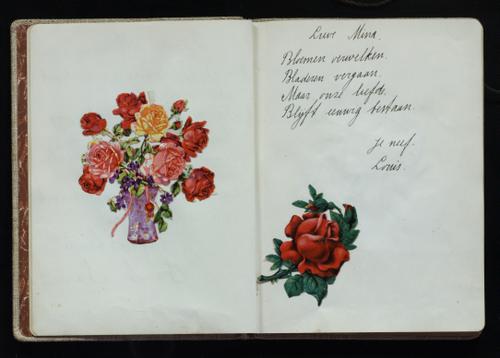 Lieve Mina.
Bloemen verwelken.
Bladeren vergaan.
Maar onze liefde.
Blyft eeuwig bestaan.
Je neef.
Louis.